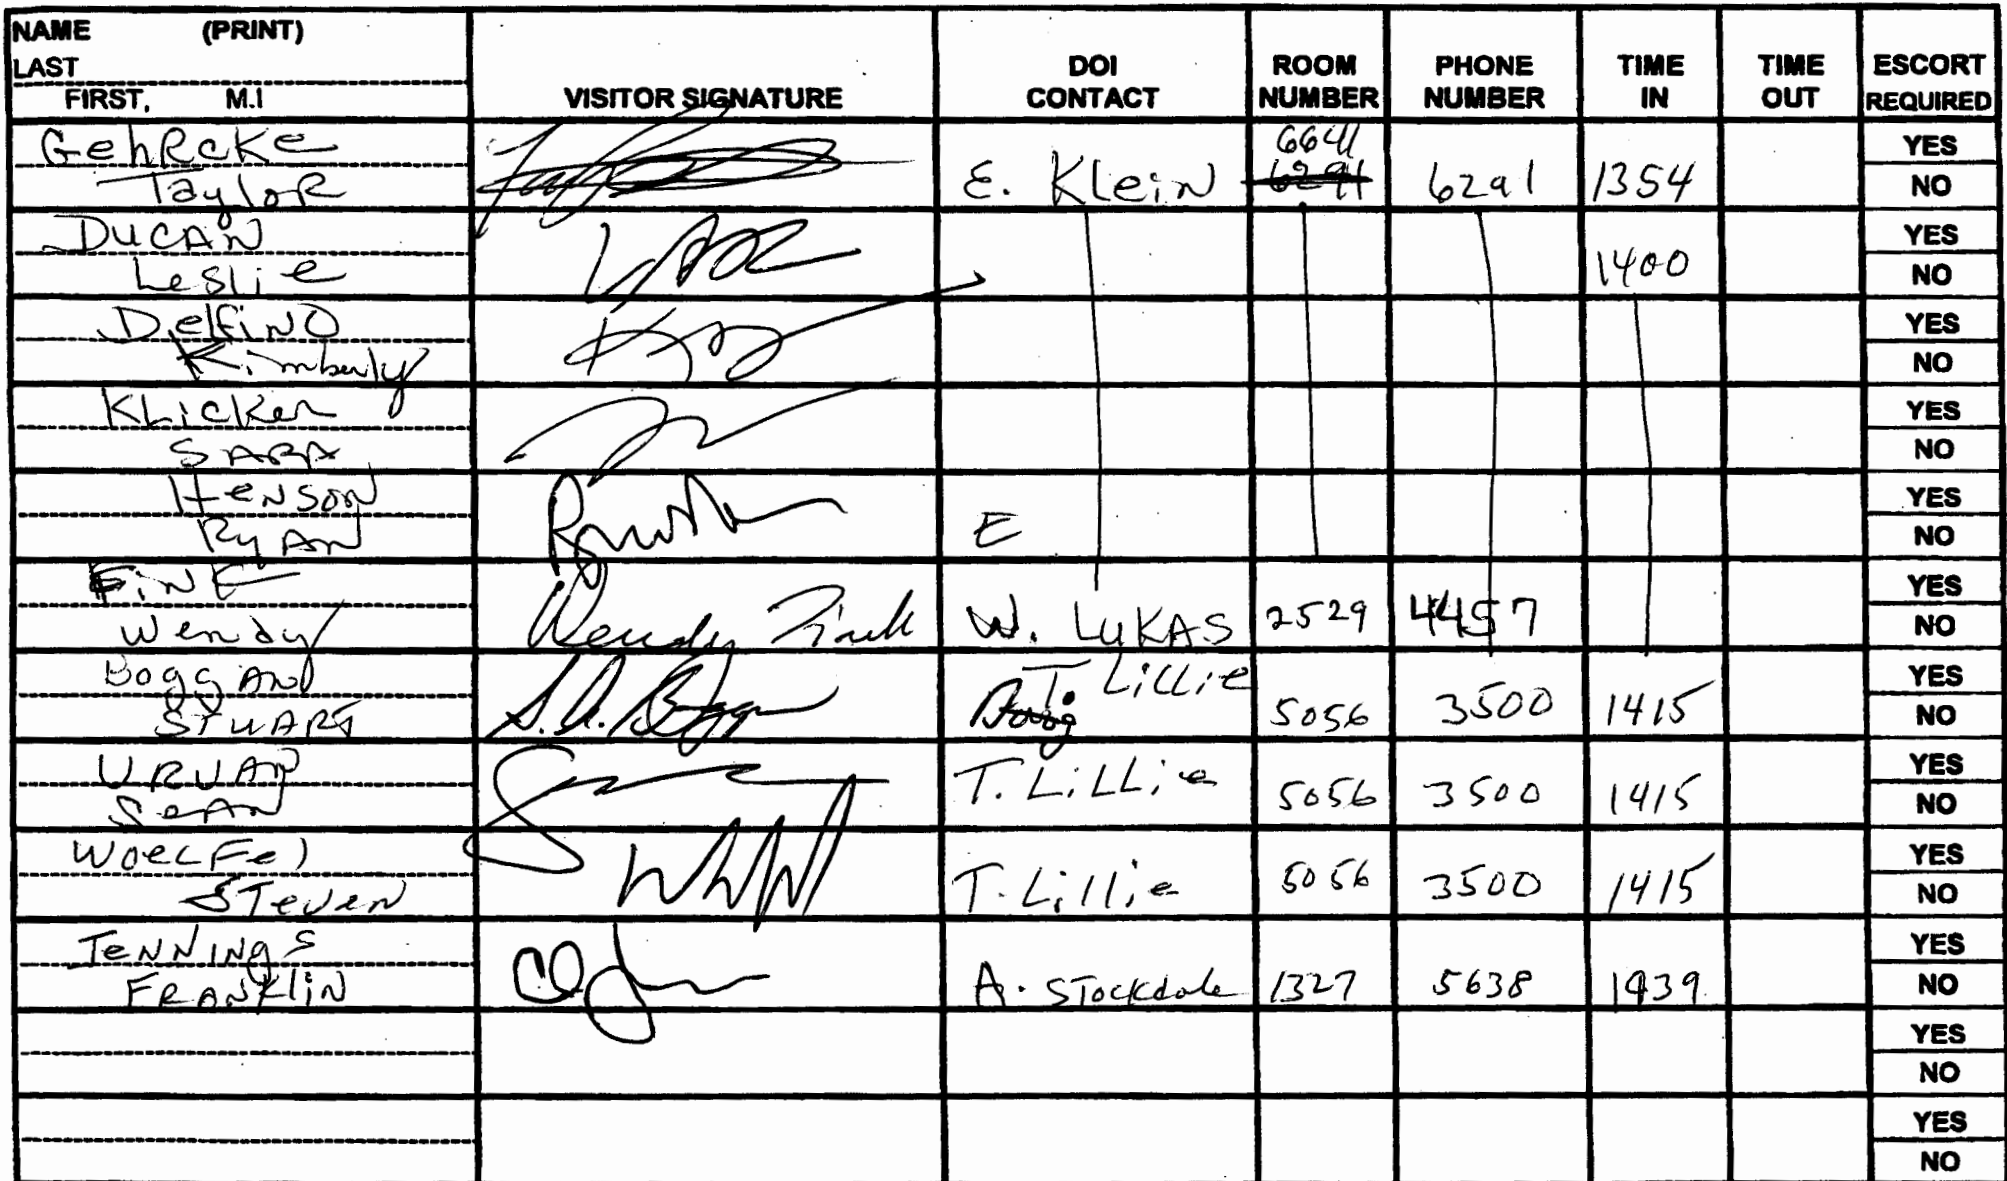 NAME (PRINT)
LAST
FIRST, M.I
VISITOR SIGNATURE
DOI CONTACT
ROOM NUMBER
PHONE NUMBER
TIME IN
TIME OUT
ESCORT REQUIRED
GehRcKe
Taylor E. Klein 6641 6291 6291 1354 YES NO
DUCAN
Leslie 1400 YES NO
DelfiNO
Kimberly YES NO
KLicKer
SARA YES NO
HeNSON
RyAN E YES NO
FiNK
Wendy Wendy Fink W. LUKAS 2529 4457 YES NO
BoggAN
STUART T. Lillie 5056 3500 1415 YES NO
URUAN
SeAN T. LiLLie 5056 3500 1415 YES NO
WoeLFel
STeveN T. Lillie 5056 3500 1415 YES NO
JeNNINgS
FRANKlin A. STockdale 1327 5638 1439 YES NO
YES
NO
YES
NO